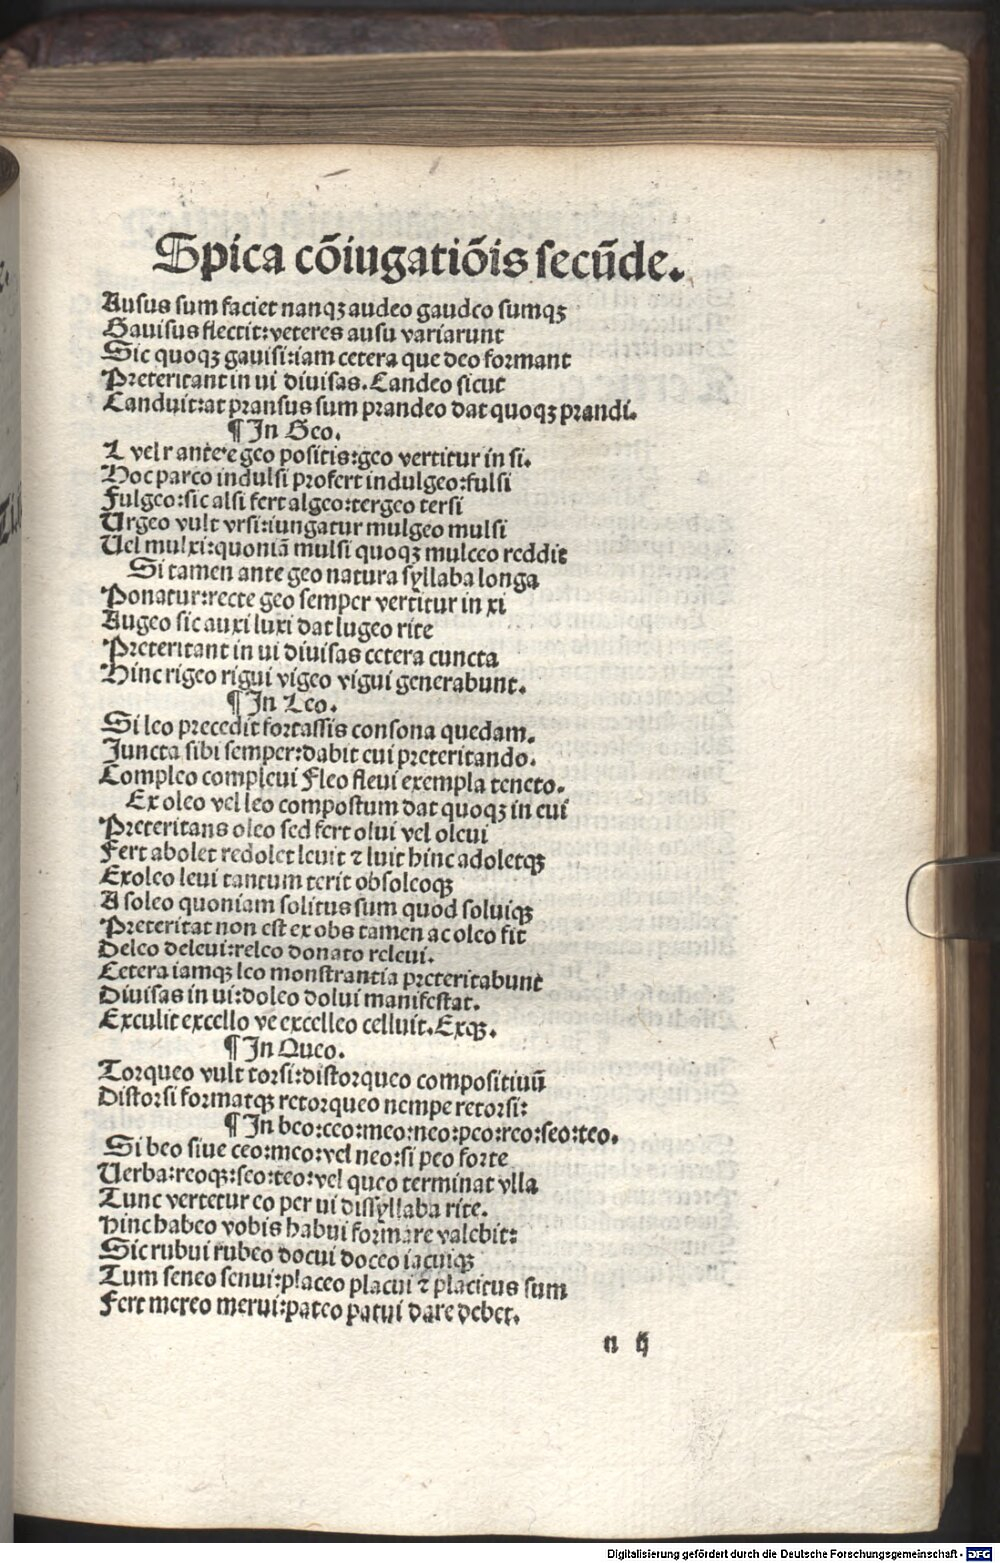 Spica cõiugatiõis secũde.
Ausus sum faciet nanqꝫ audeo gaudeo sumqꝫ
Gauisus flectit: veteres ausu variarunt
Sic quoqꝫ gauisi: iam cetera que deo formant
Preteritant in ui diuisas. Candeo sicut
Canduit: at pransus sum prandeo dat quoqꝫ prandi.
¶ In Geo.
L vel r ante e geo positis: geo vertitur in si.
Hoc parco indulsi profert indulgeo: fulsi
Fulgeo: sic alsi fert algeo: tergeo tersi
Urgeo vult vrsi: iungatur mulgeo mulsi
Uel mulxi: quoniã mulsi quoqꝫ mulceo reddit
Si tamen ante geo natura syllaba longa
Ponatur: recte geo semper vertitur in xi
Augeo sic auxi luxi dat lugeo rite
Preteritant in ui diuisas cetera cuncta
Hinc rigeo rigui vigeo vigui generabunt.
¶ In Leo.
Si leo precedit fortassis consona quedam.
Juncta sibi semper: dabit eui preteritando.
Compleo compleui Fleo fleui exempla teneto.
Ex oleo vel leo compostum dat quoqꝫ in eui
Preteritans oleo sed fert olui vel oleui
Fert abolet redolet leuit ⁊ luit hinc adoletqꝫ
Exoleo leui tantum terit obsoleoqꝫ
A soleo quoniam solitus sum quod soluiqꝫ
Preteritat non est ex obs tamen ac oleo fit
Deleo deleui: releo donato releui.
Cetera iamqꝫ leo monstrantia preteritabunt
Diuisas in ui: doleo dolui manifestat.
Exculit excello ve excelleo celluit. Exqꝫ.
¶ In Queo.
Torqueo vult torsi: distorqueo compositiuũ
Distorsi formatqꝫ retorqueo nempe retorsi:
¶ In beo: ceo: meo: neo: peo: reo: seo: teo.
Si beo siue ceo: meo: vel neo: si peo forte
Uerba: reoqꝫ: seo: teo: vel queo terminat vlla
Tunc vertetur eo per ui dissyllaba rite.
Hinc habeo vobis habui formare valebit:
Sic rubui rubeo docui doceo iacuiqꝫ
Tum seneo senui: placeo placui ⁊ placitus sum
Fert mereo merui: pateo patui dare debet.
n ij
Digitalisierung gefördert durch die Deutsche Forschungsgemeinschaft - DFG